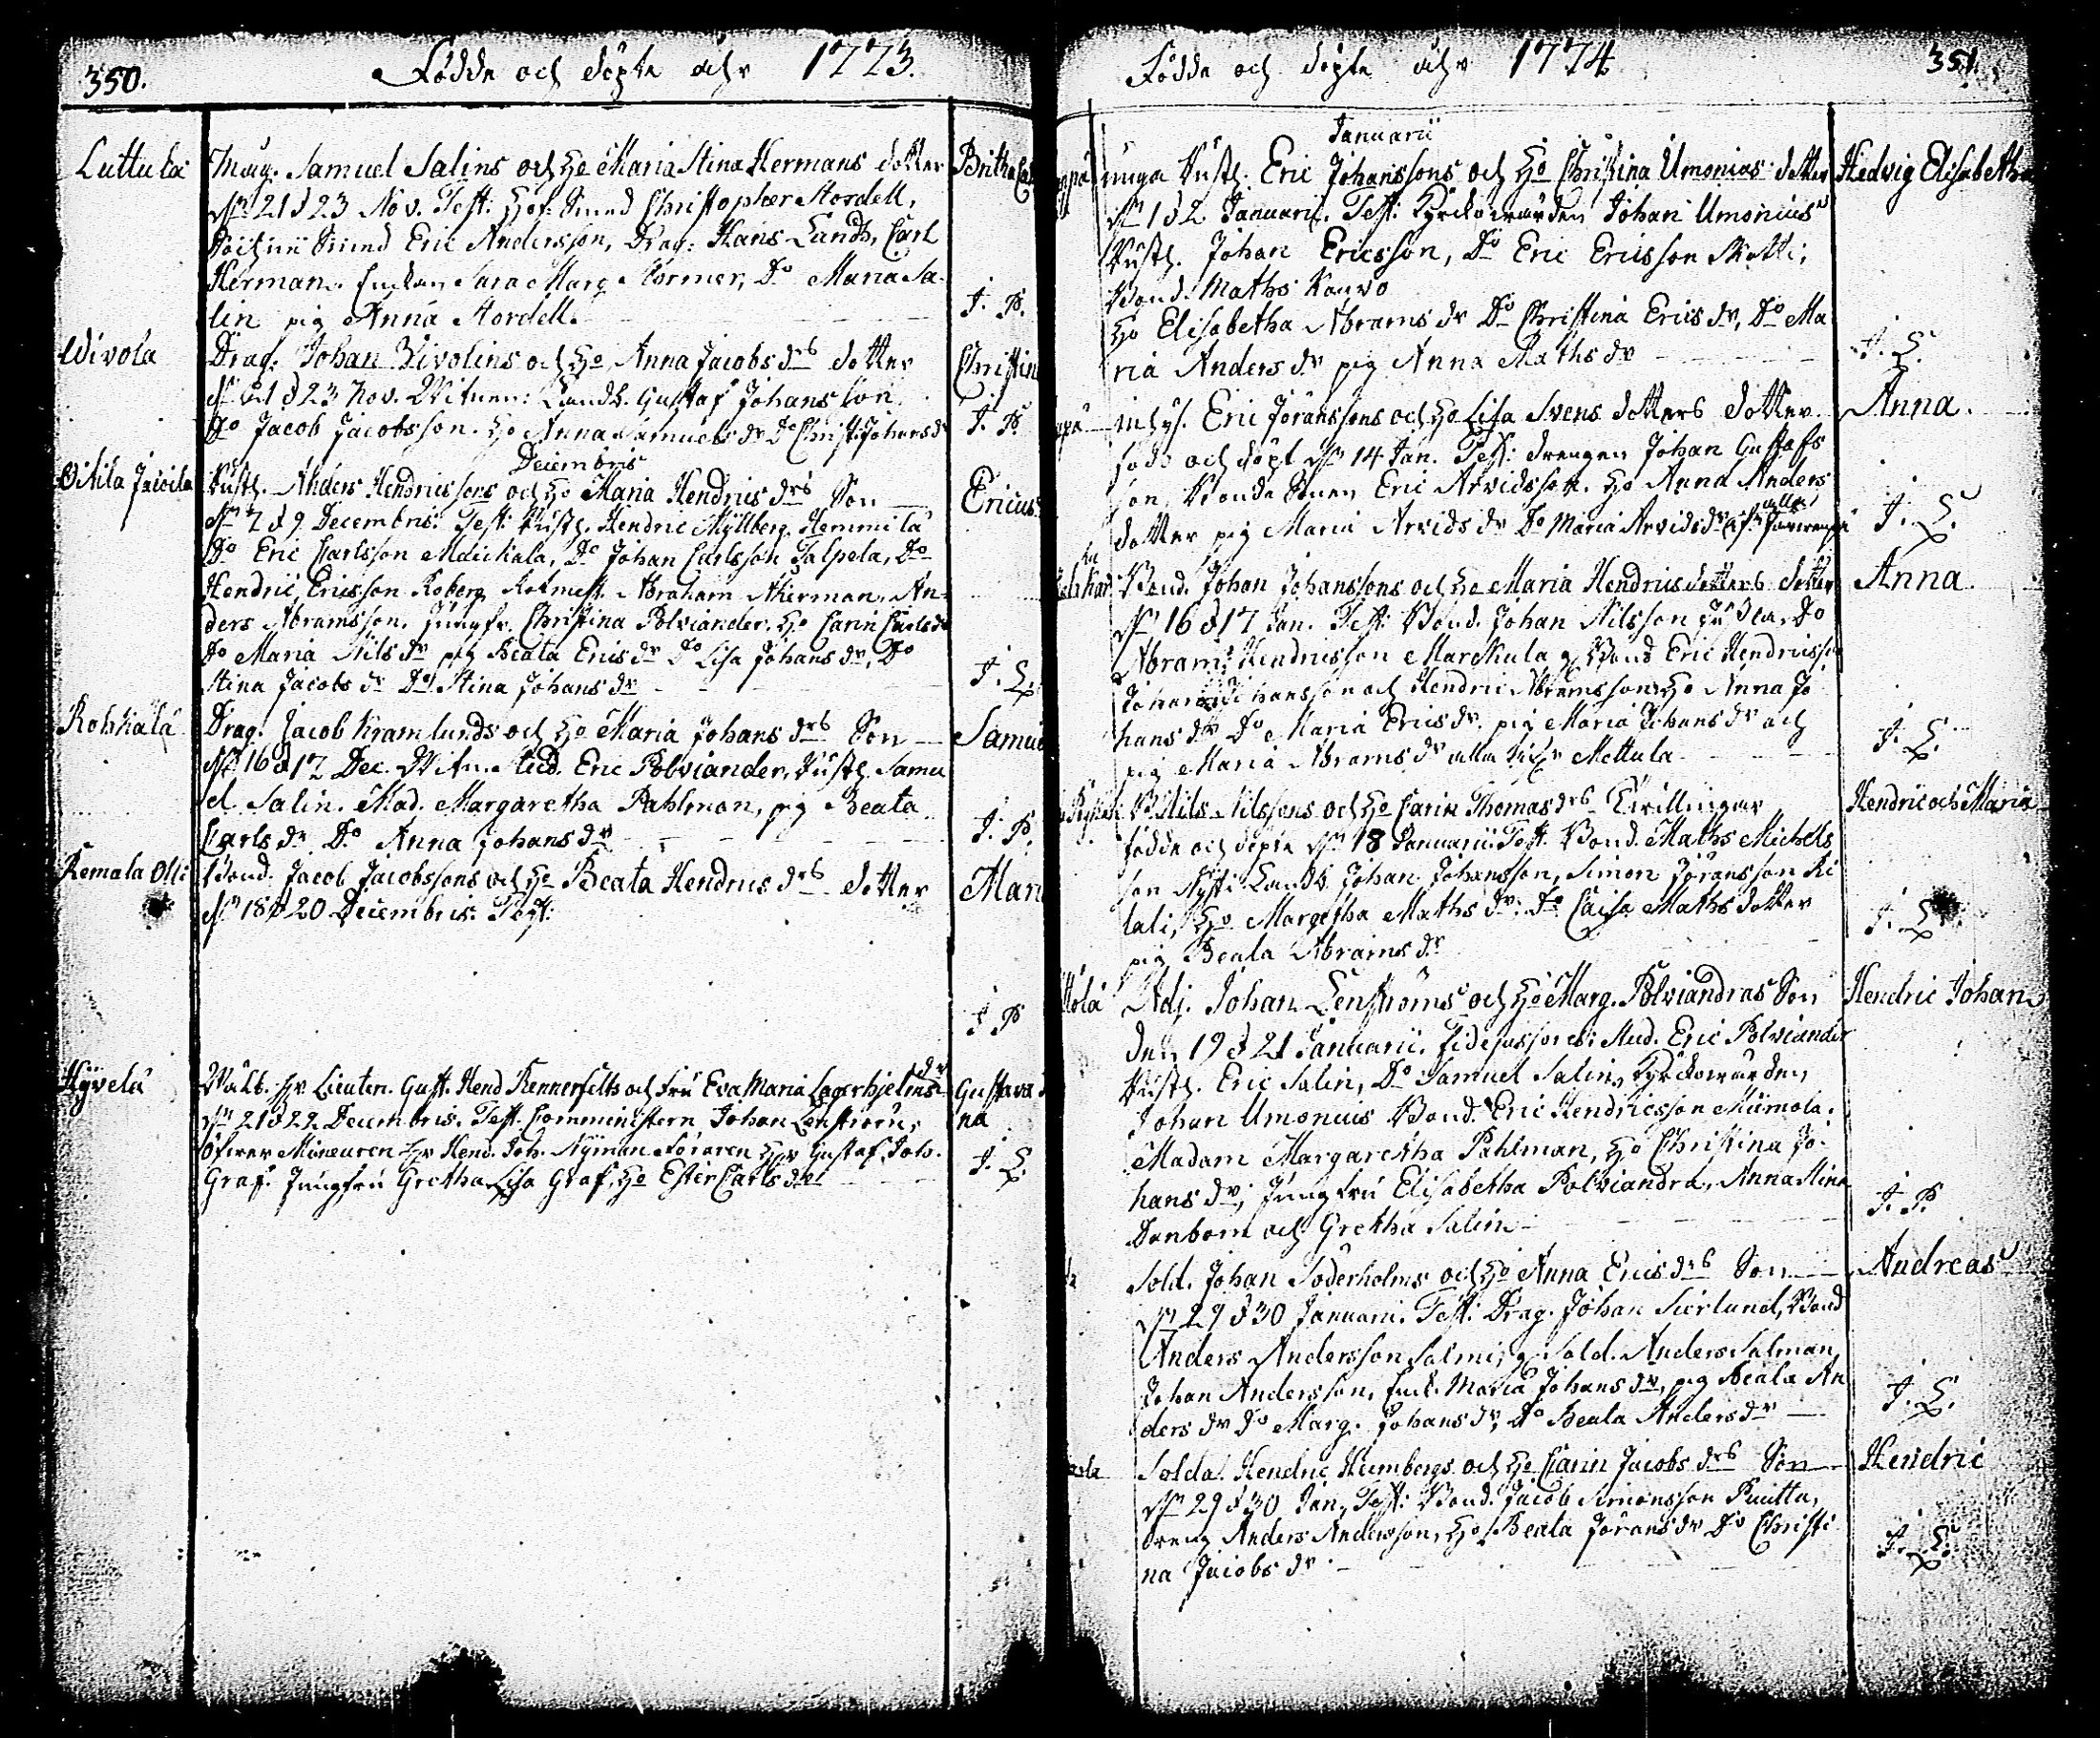 350.
Födde och döpte åhr 1773.
Luttula
Mag. Samuel Salins och Ho Maria Stina Hermans dotter
Britha
dn 21 d 23 Nov. Test: Smed Christopher Nordell,
Smed Eric Andersson, Drag: Hans Lund, Carl
Herman. Enckan Sara Marg Do Maria Sa-
lin pig Anna Nordell.
J. P.
Wivola
Drag: Johan Wivolins och Ho Anna Jacobs drs dotter
Christin
dn 21 d 23 Nov. Witnen: Landb. Gustaf Johansson
Do Jacob Jacobsson. Ho Anna Samuels dr Do Christ. Johans dr
J. P.
Decembris
Rusth. Anders Hendricssons och Ho Maria Hendrics drs Son
Ericus
dn 7 d 9 Decembris. Test: Rusth. Hendric Myllberg Hemmilä
Do Eric Carlsson Do Johan Carlsson Talpela, Do
Hendric Ericsson Roberg Abraham Åkerman, An-
ders Abramsson, Jungfr. Christina Polviander. Ho Carin Carls dr
Do Maria Nils dr pig Beata Erics dr Do Lisa Johans dr, Do
Stina Jacobs dr Do Stina Johans dr
J. L.
Rohkala
Drag. Jacob Kramlunds och Ho Maria Johans drs Son
Samue
dn 16 d 17 Dec. Witn. Stud. Eric Polviander, Rusth. Samu
el Salin. Mad. Margaretha Pahlman, pig Beata
Carls dr Do Anna Johans dr
J. P.
Remala Olli
Bond. Jacob Jacobssons och Ho Beata Hendrics drs dotter
Mari
dn 18 d 20 Decembris. Test:
J P
Hyvelä
Wälb. Hr Lieuten. Gust. Hend Rennerfelts och Fru Eva Maria Lagerhjelms dr
Gustava
dn 21 d 22 Decembris. Test. Comministern Johan Lenström,
na
Hr Hend. Joh. Nyman Föraren Hr Gustaf Joh.
Graf. Jungfru Gretha Lisa Graf, Ho Ester Carls dr
J. L.
Födde och döpte åhr 1774
351.
Januarii
unga Rusth. Eric Johanssons och Ho Christina Umonias dotter
Hedvig Elisabetha
dn 1 d 2 Januarii. Test: Kyrckowärden Johan Umonius
Rusth. Johan Ericsson, Do Eric Ericsson
Bond. Maths Kauvo
Ho Elisabetha Abrams dr Do Christina Erics dr, Do Ma
ria Anders dr pig Anna Maths dr
J. L.
inhys. Eric Jöranssons och Ho Lisa Svens dotters dotter
Anna.
född och döpt dn 14 Jan. Test: drengen Johan Gustafs
son, Bonde Sonen Eric Arvidsson. Ho Anna Anders
dotter pig Maria Arvids dr Do Maria Arvids dr alla
J. L.
Bond. Johan Johanssons och Ho Maria Hendrics dotters dotter
Anna.
dn 16 d 17 Jan. Test: Bond. Johan Nilsson Do
Abram Hendricsson Marckula Bond Eric Hendricsson
Johan Johansson och Hendric Abramsson Ho Anna Jo
hans dr Do Maria Erics dr. pig Maria Johans dr och
pig Maria Abrams dr alla Mettula
J. L.
B. Nils Nilssons och Ho Carin Thomas drs Tvillingar
Hendric och Maria
födde och döpte dn 18 Januarii Test. Bond. Maths Michels
son Landb Johan Johansson, Simon Jöransson Ri
tali, Ho Margetha Maths dr, Do Caisa Maths dotter
pig Beata Abrams dr
J. L.
Adj. Johan Lenströms och Ho Marg. Polviandras Son
Hendric Johan
den 19 d 21 Januarii. Fidejussores: Stud. Eric Polviander
Rusth. Eric Salin, Do Samuel Salin, Kyrckowärden
Johan Umonius Bond. Eric Hendricsson
Madam Margaretha Pahlman, Ho Christina Jo-
hans dr, Jungfru Elisabetha Polviandra, Anna Stina
Danbom och Gretha Salin
J. P.
Sold. Johan Söderholms och Ho Anna Erics drs Son
Andreas
dn 29 d 30 Januarii. Test: Drag. Johan Bond
Anders Andersson Salmi, Sold. Anders Salman
Johan Andersson, Enck. Maria Johans dr, pig Beata An
ders dr Do Marg. Johans dr, Do Beata Anders dr
J. L.
Solda. Hendric Humbergs och Ho Carin Jacobs drs Son
Hendric
dn 29 d 30 Jan. Test: Bond. Jacob Simonsson
dreng Anders Andersson, Ho Beata Jörans dr Do Christi
na Jacobs dr
J. L.